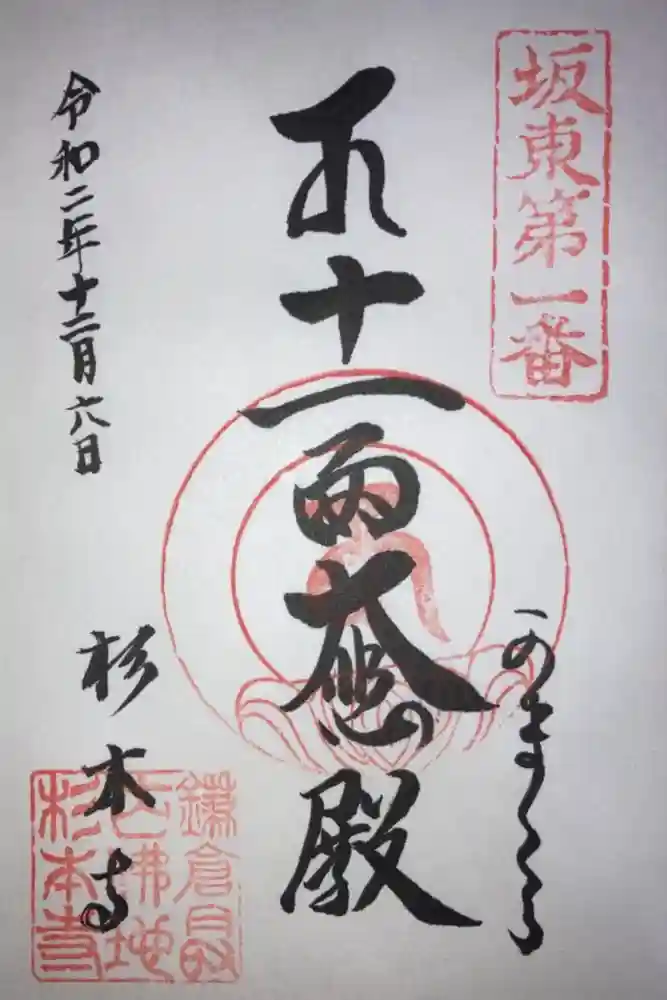 坂東第一番
かまくら
十一面大悲殿
令和二年十二月六日
杉本寺
鎌倉最
古佛地
杉本寺